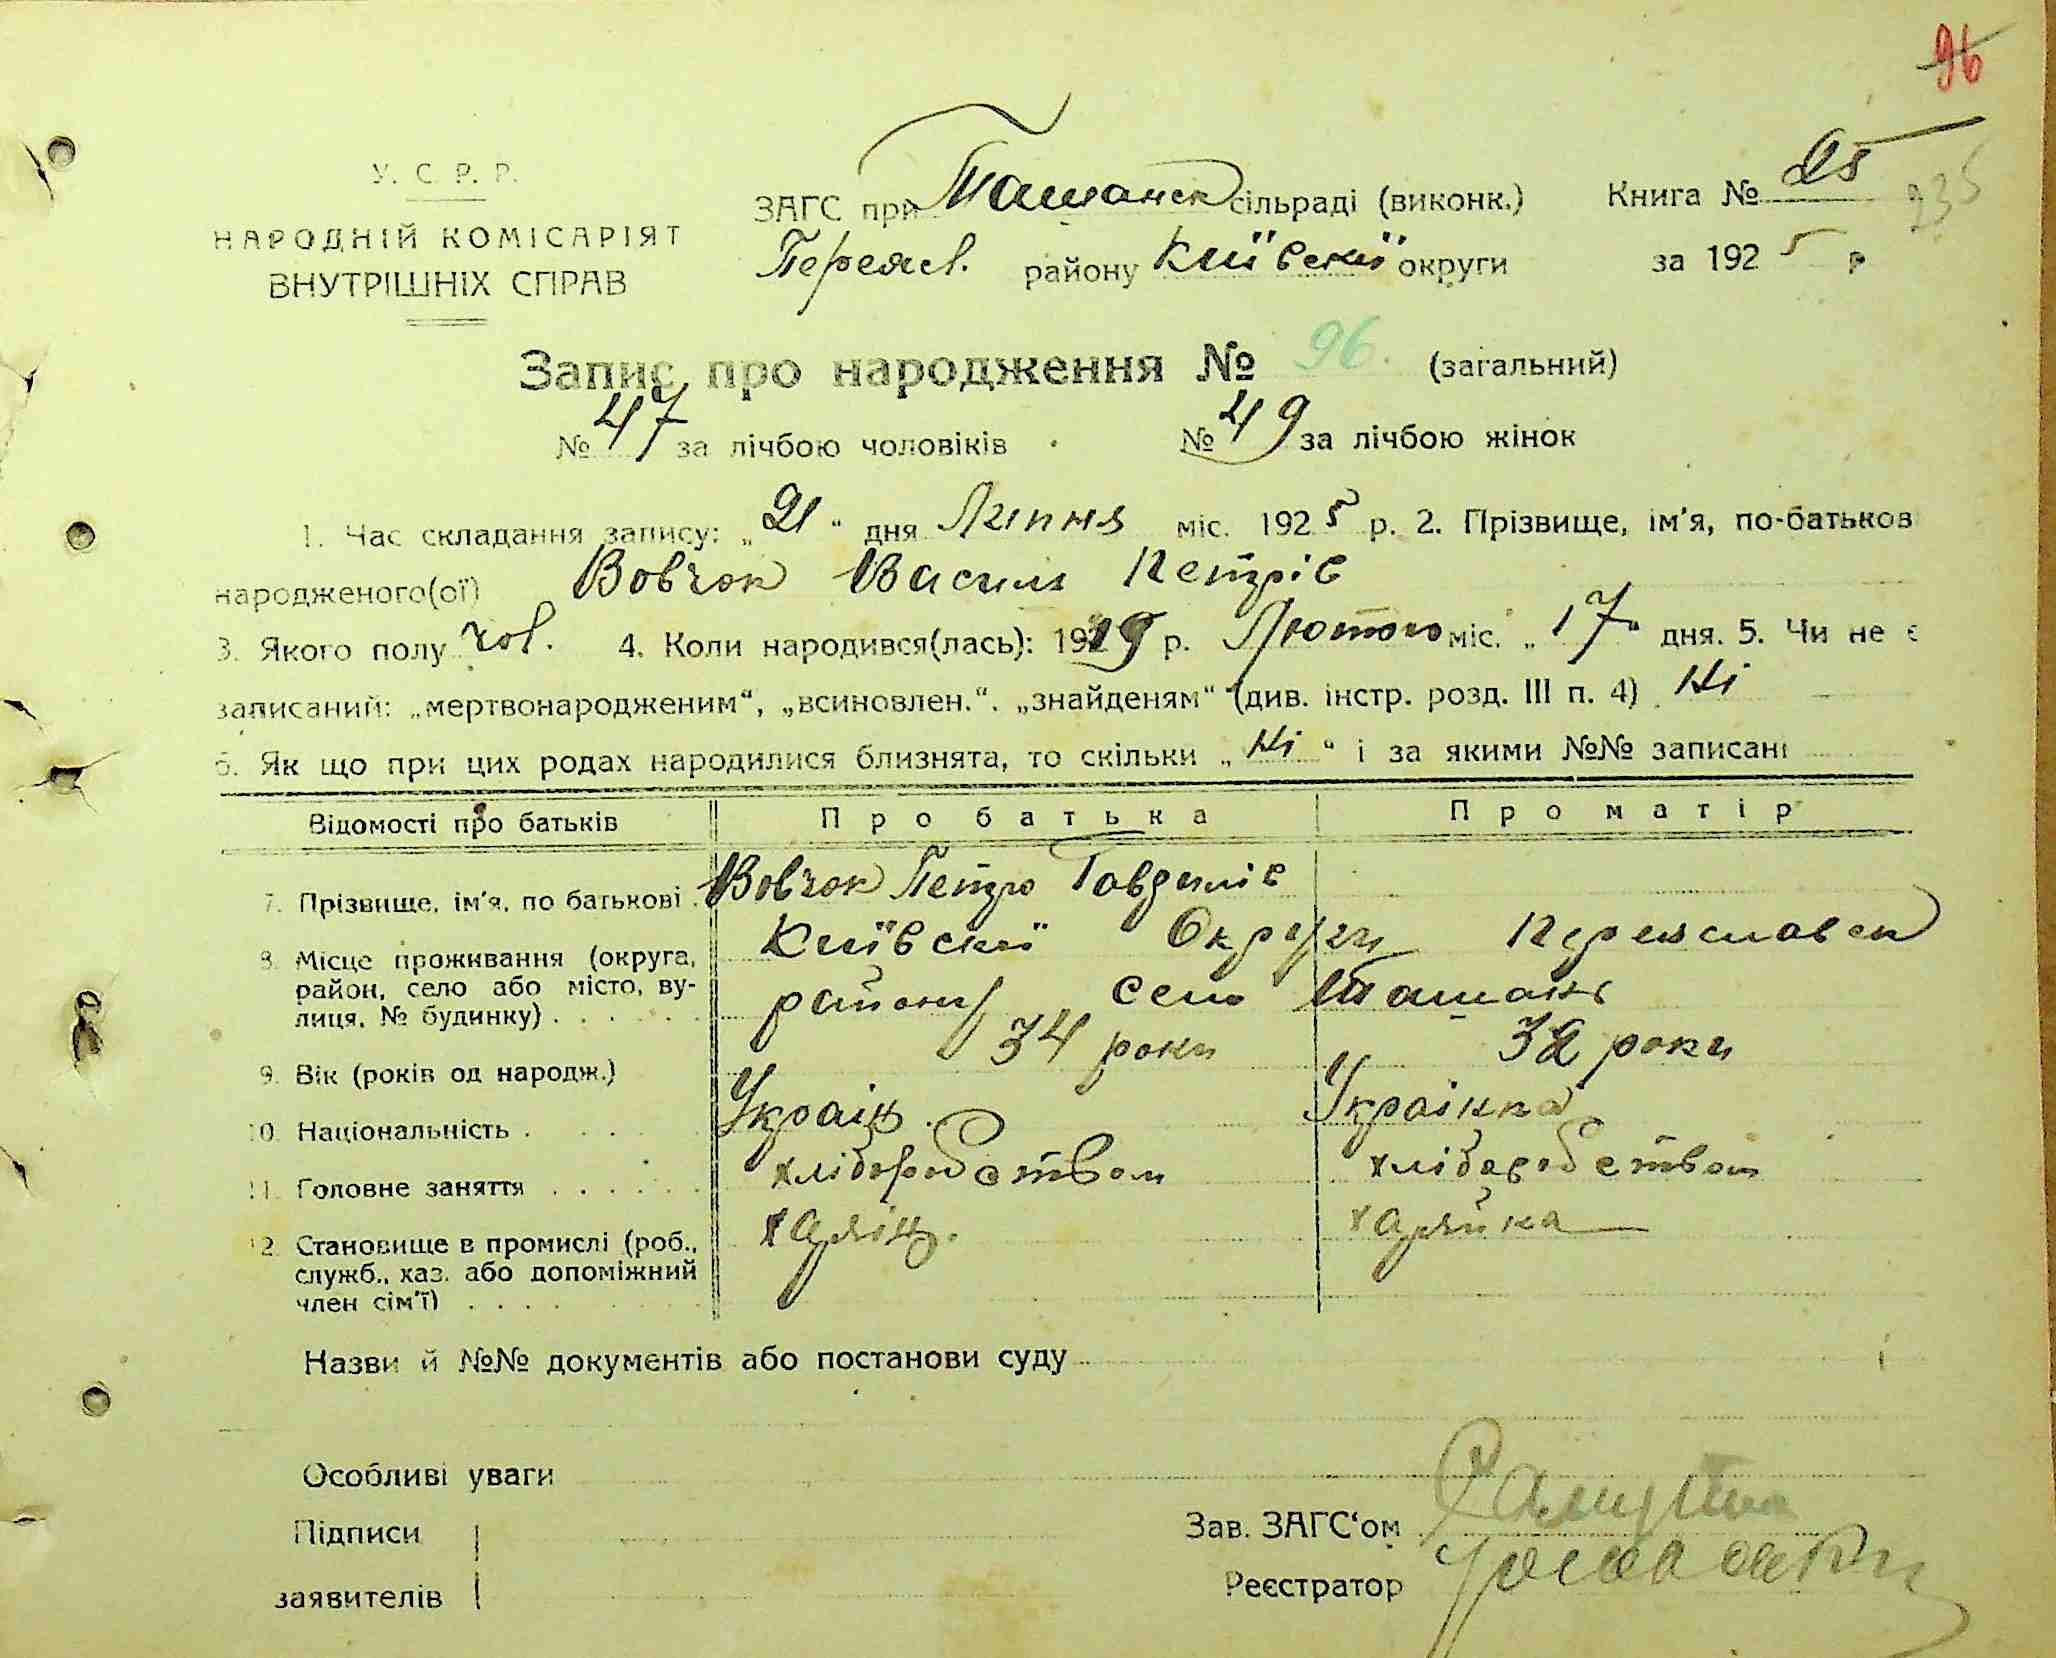 96
У. С. Р. Р.
НАРОДНІЙ КОМІСАРІЯТ
ВНУТРІШНІХ СПРАВ
ЗАГС при Ташанск сільраді (виконк.)
Переясл. району Київскої округи
Книга № 25
235
за 1925 р
Запис про народження № 96. (загальний)
№ 47 за лічбою чоловіків
№ 49 за лічбою жінок
1. Час складання запису: „21“ дня Липня міс. 1925 р. 2. Прізвище, ім'я, по-батьков
народженого(ої) Вовчок Василь Петрів
3. Якого полу чол. 4. Коли народився(лась): 1919 р. Лютого міс. „17“ дня. 5. Чи не є
записаний: „мертвонародженим“, „всиновлен.“. „знайденям“ (див. інстр. розд. III п. 4) Ні
6. Як що при цих родах народилися близнята, то скільки „Ні“ і за якими №№ записані
Відомості про батьків Про батька Про матір
7. Прізвище, ім'я, по батькові . Вовчок Петро Говдилів
8. Місце проживання (округа, Київскої Округи Переяславск
район, село або місто, ву- району село Ташань
лиця, № будинку) . . . . . .
9. Вік (років од народж.) 34 роки 32 роки
10. Національність . Украінц. Украінка
11. Головне заняття . . . . . . хліборобством хліборобством
12. Становище в промислі (роб., хазяін. хазяйка
служб., хаз. або допоміжний
член сім'ї) . . . .
Назви й №№ документів або постанови суду
Особливі уваги
Підписи
заявителів
Зав. ЗАГС'ом
Реєстратор